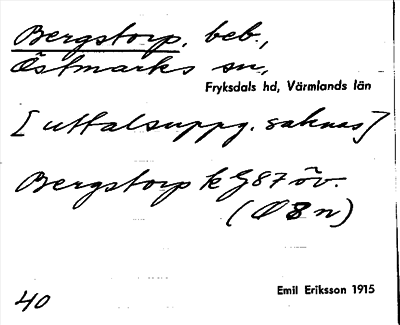 Bergstorp. beb.,
Östmarks sn,
Fryksdals hd, Värmlands län
[uttalsuppg. saknas]
Bergstorp k G87 öv.
(Ö 8 n)
40
Emil Eriksson 1915